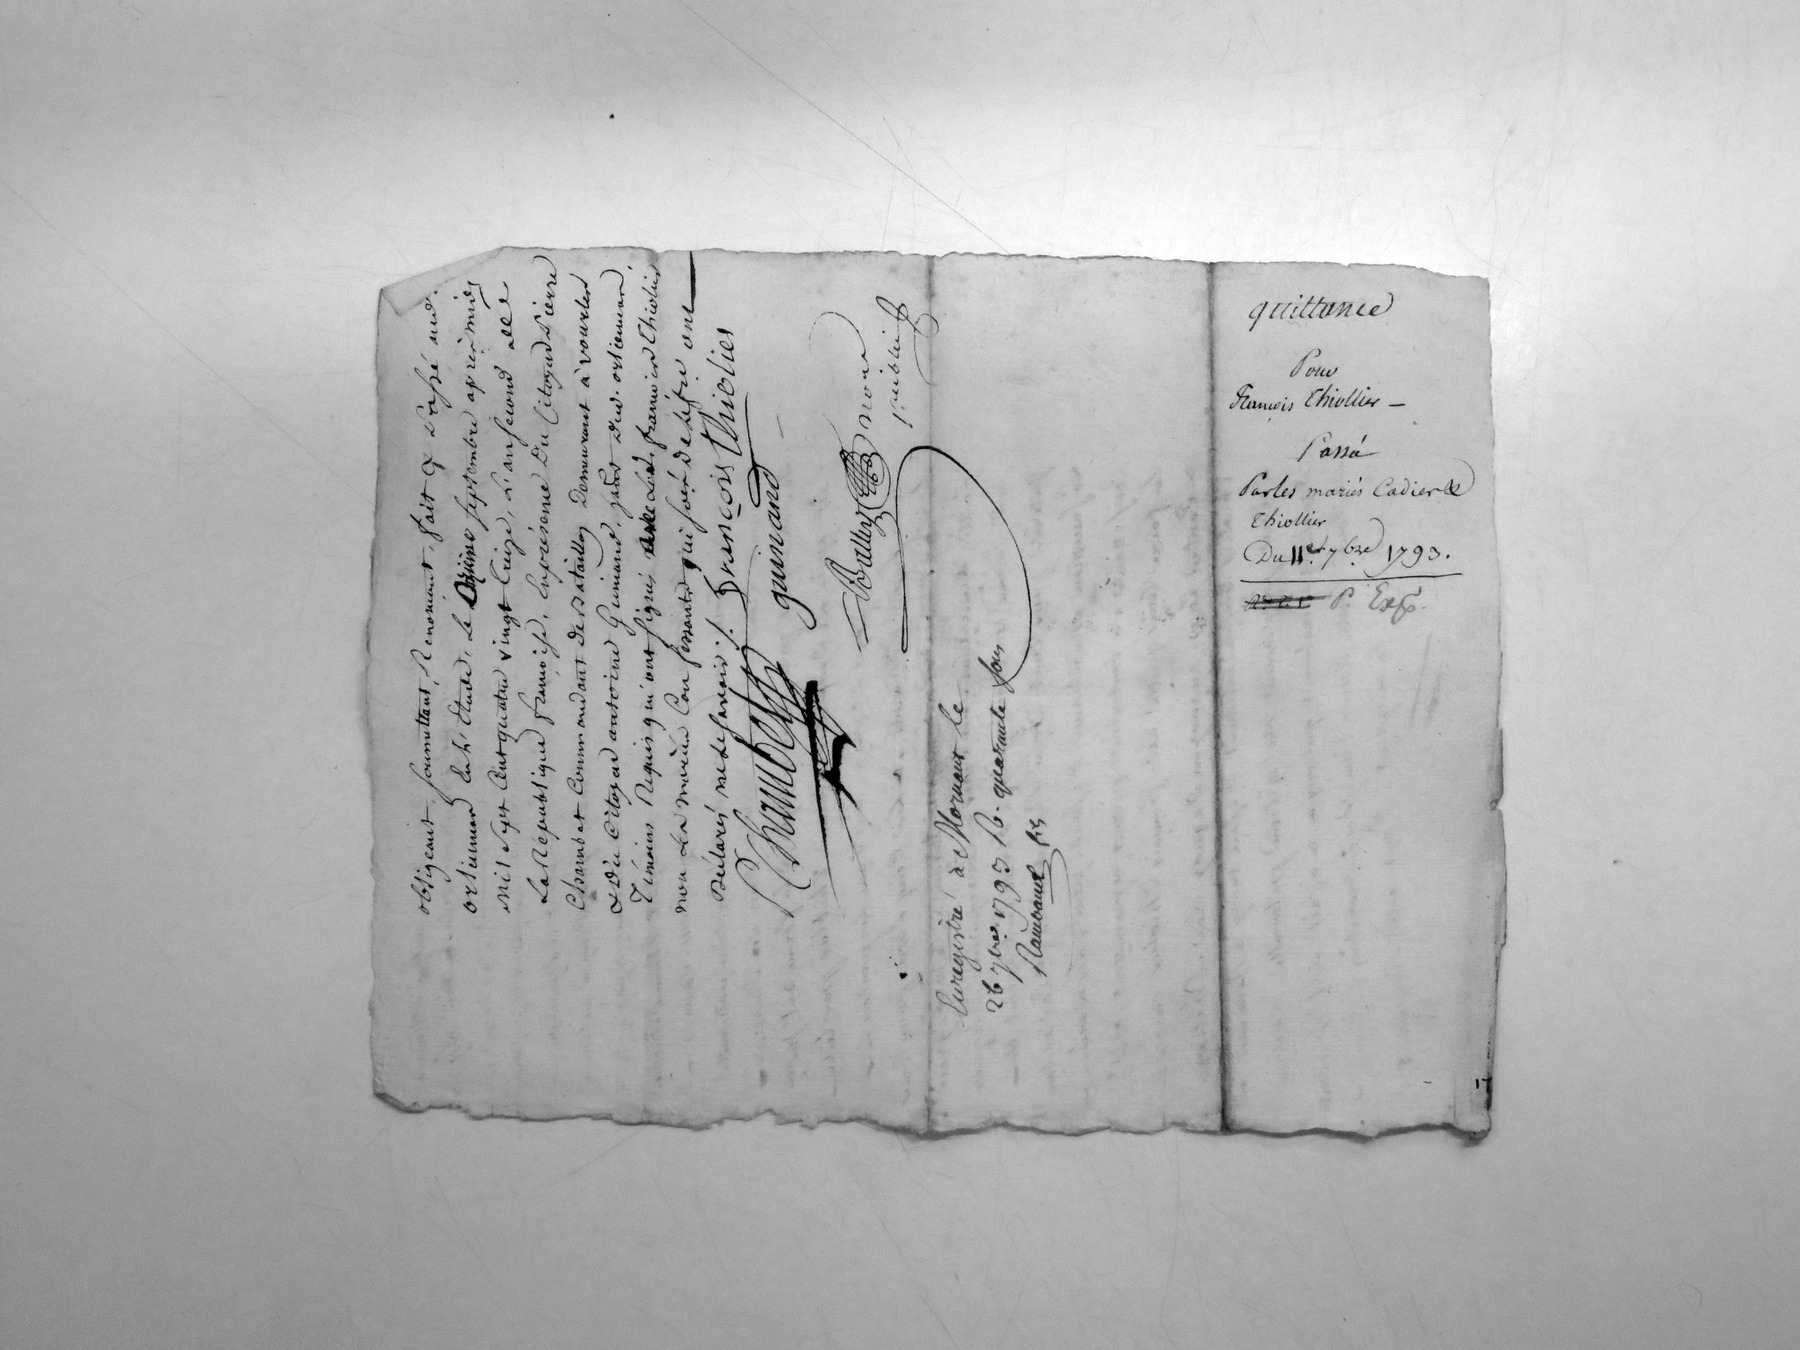 obligeant, soumettant, Renoncant, fait & Passé aud.
orliennas En L'étude, Le onzieme septembre après midy
Mil sept Cent quatre vingt treize, L'an second de
La Republique françoise, En présence Du Citoyen Pierre
Chambet Commandant de Bataillon Demeurant à Vourles
& Du Citoyen antoine Guinand, Dud. orliennas,
Témoins Requis qui ont signés avec Led. francois thiolier
non Les mariés Confessants qui sur de ce Enquis ont
Déclarés ne le savoir ./.
françois thiolies
Chambet
guinand
Boulley nore
public
Enregistré à Mornant le
26 7bre 1793 R. quarante sous
Rambaud fils
quittance
Pour
François Thiollier —
Passée
Par les mariés Cadier &
Thiollier
Du 11e. 7bre 1793.
P. Exp.